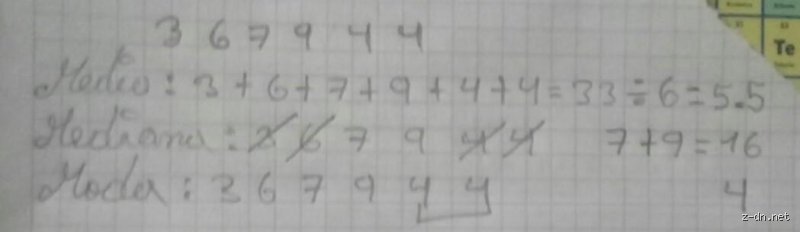 3 6 7 9 4 4
Media: 3 + 6 + 7 + 9 + 4 + 4 = 33 ÷ 6 = 5.5
Mediana: 3 6 7 9 4 4 7+9=16
Moda: 3 6 7 9 4 4 4
Te
z-dn.net